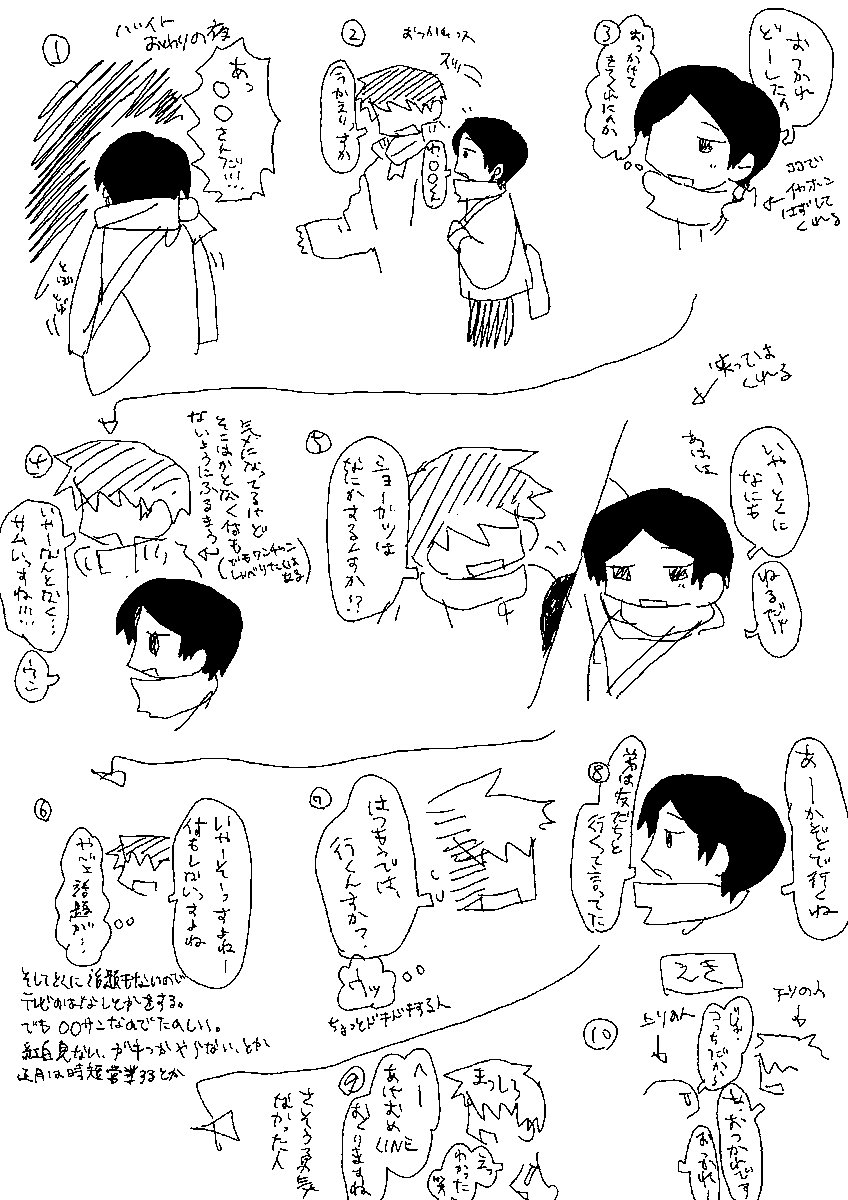 ①
バイト
おわりの夜
あっ
○○
さんだ!!!
とぼ
とぼ
②
おつかれっス
今かえりすか
わ
○○くん
③
おつかれ
どーしたの
おっかけて
きてくれたのか
ココで
イヤホン
はずして
くれる
④
気になってるけど
そこはかとなく何も
ないようにふるまう
(でもワンチャン
しゃべりたくはある)
いやーなんとなく…
サムいっすね!!!
ウン
⑤
ショーガツは
なにかするんすか!?
笑っては
くれる
あはは
いやーとくに
なにも
ねるだけ
⑥
いやーそーっすよねー
何もしないっすよね
やべェ
話題
が…
そしてとくに話題もないので
テレビのはなしとかをする。
でも○○サンなのでたのしい。
紅白見ない、ガキつかやらない、とか
正月は時短営業するとか
⑦
はつもうでは、
行くんすか?
ウッ
ちょっとドキドキする人
⑧
あーかぞくで行くね
弟は友だちと
行くって言ってた
⑨
まっしろ
へー
あけおめ
LINE
おくりますね
えっ
わかった
笑
さそう勇気
なかった人
えき
⑩
上りの人
下りの人
じゃ、
こっちだから
おつかれです
おつかれー